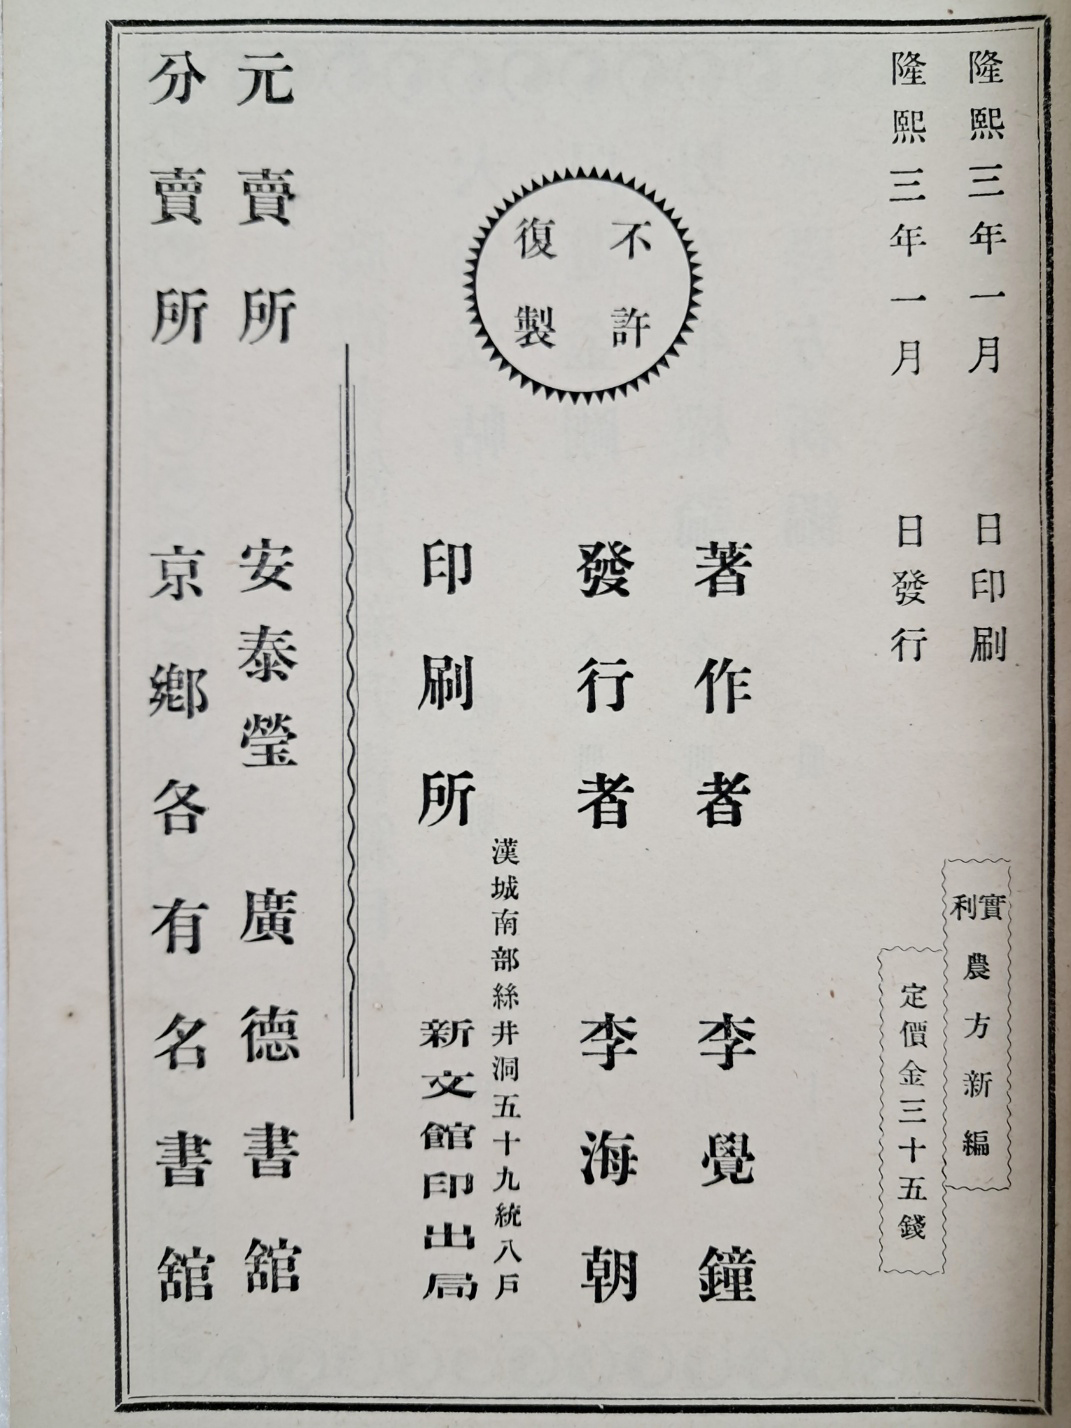 隆熙三年一月 日印刷
隆熙三年一月 日發行
實利 農方新編
定價金三十五錢
不許
復製
著作者 李覺鐘
發行者 李海朝
漢城南部絲井洞五十九統八戶
印刷所 新文館印出局
元賣所 安泰瑩 廣德書舘
分賣所 京鄉各有名書舘